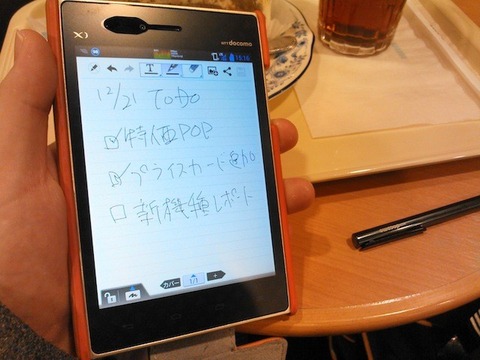 Xi
docomo
T
12/21 ToDo
☑特価POP
☑プライスカード
□新機種レポート
カバー
1/1
+